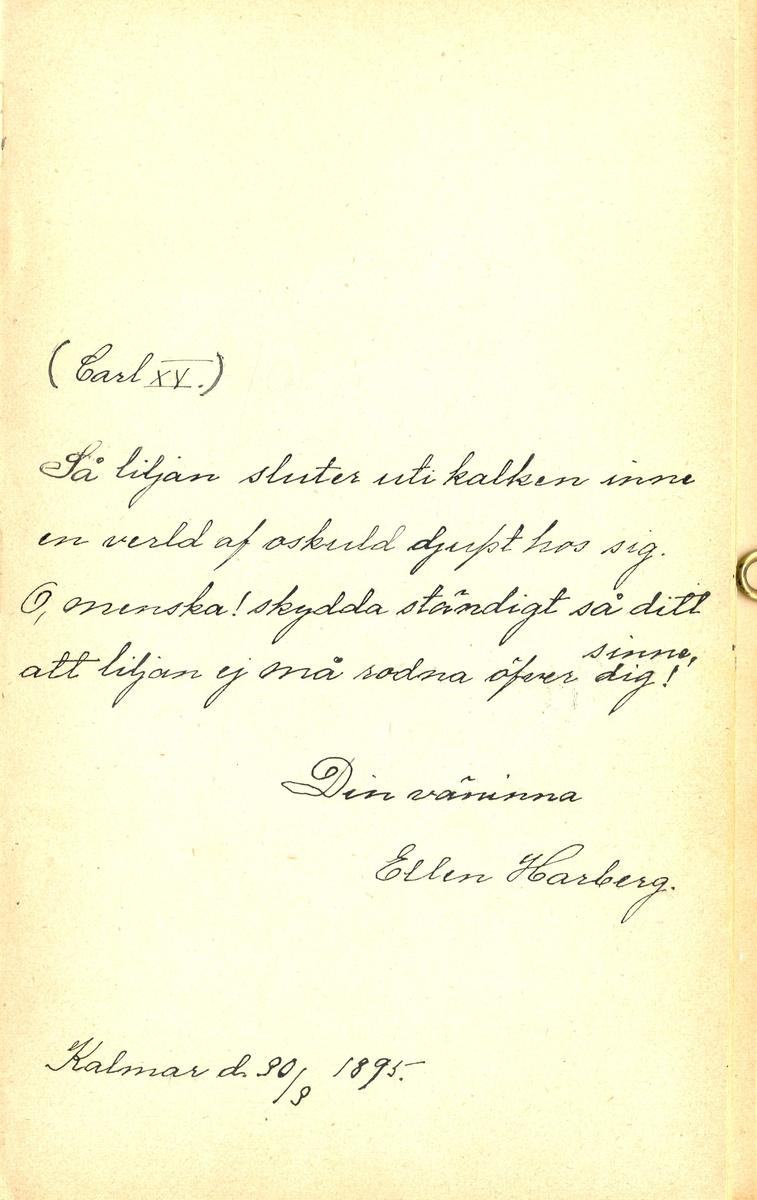 (Carl XV.)
Så liljan sluter uti kalken inne
en verld af oskuld djupt hos sig.
O, menska! skydda ständigt så ditt
sinne,
att liljan ej må rodna öfver dig!
Din väninna
Ellen Harberg.
Kalmar d. 30/9 1895.